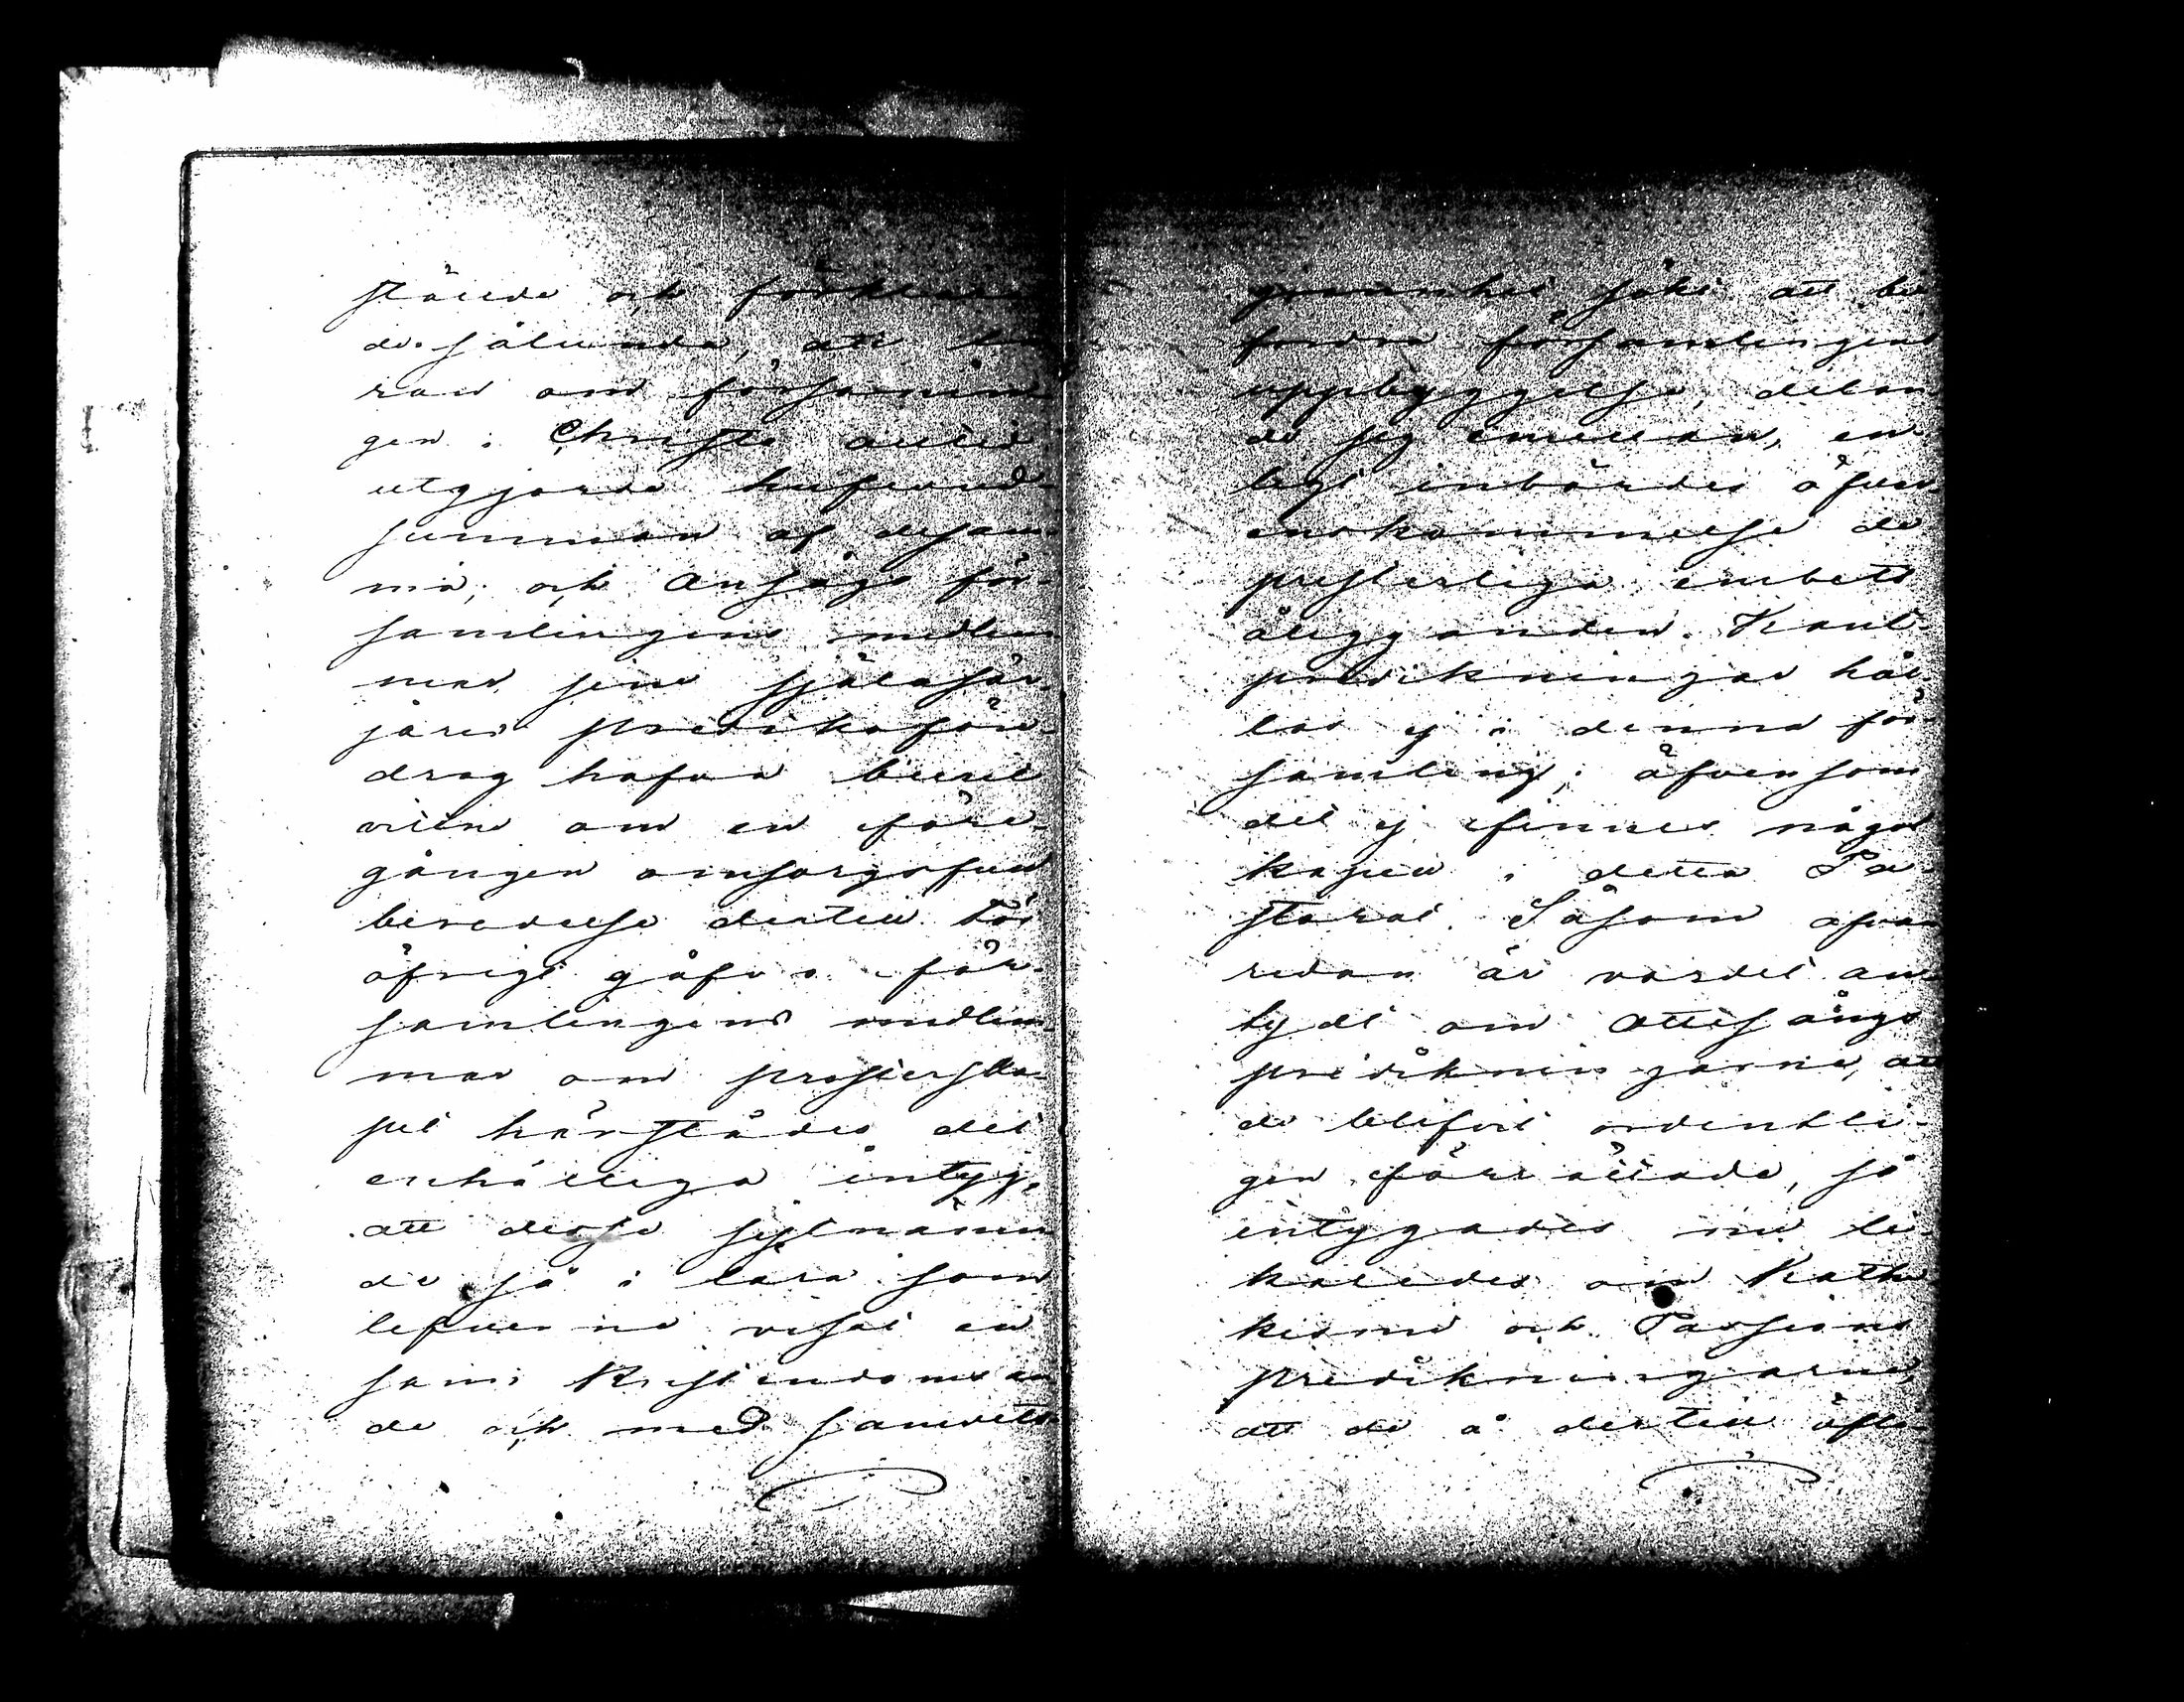 stående och förklara-
de sålunda, att lä-
ran om försonin-
gen i Christo alltid
utgjorde hufvud-
summan af desam-
ma; och ansågo för-
samlingens medlem-
mar sine själasör-
jares predikoföre-
drag hafva buret
vittne om en före-
gången omsorgsfull
beredelse dertill. För
öfrigt gåfvo för-
samlingens medlem-
mar om presterska-
pet härstädes det
enhälliga intyg,
att desse själmanin
de så i lära som
lefverne visat en
sann Kristendoms an-
da och med samvets-
grannhet sökt att be-
fordra församlingens
uppbyggelse, delan-
de sig emellan, en-
ligt inbördes öfver-
enskommelse de
presterliga embets
åligganden. Kant-
predikningar hål-
las ej i denna för-
samling; äfvensom
det ej finnes någon
kapell i detta Pa-
storat. Såsom ofvan
redan är vordet an-
tydt om Ottesångs
predikningarne, att
de blifvit ordentli-
gen förrättade, så
intygades nu li-
kaledes om Kathe-
kismi och Passions
predikningarne,
att de å dertill öfli-